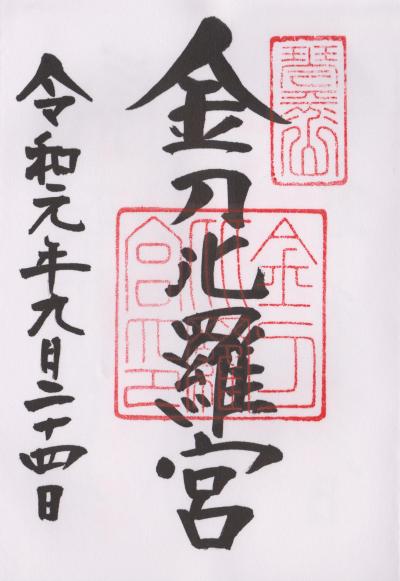 金刀比羅宮
金刀比羅宮印
令和元年九月二十四日